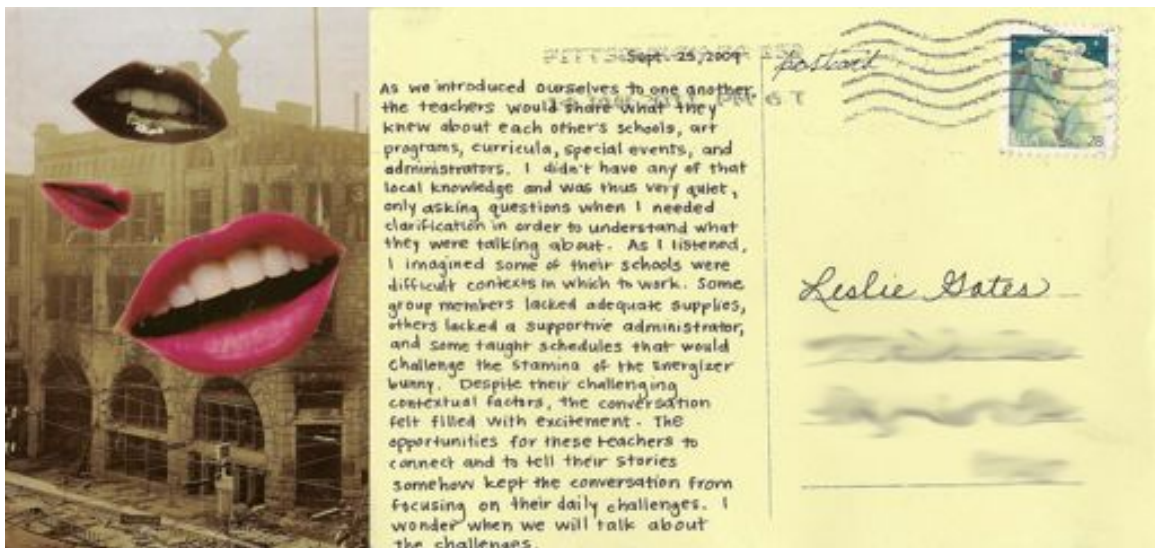 Sept. 25, 2009
As we introduced ourselves to one another,
the teachers would share what they
knew about each other's schools, art
programs, curricula, special events, and
administrators. I didn't have any of that
local knowledge and was thus very quiet,
only asking questions when I needed
clarification in order to understand what
they were talking about. As I listened,
I imagined some of their schools were
difficult contexts in which to work. Some
group members lacked adequate supplies,
others lacked a supportive administrator,
and some taught schedules that would
challenge the stamina of the Energizer
bunny. Despite their challenging
contextual factors, the conversation
felt filled with excitement. The
opportunities for these teachers to
connect and to tell their stories
somehow kept the conversation from
focusing on their daily challenges. I
wonder when we will talk about
the challenges.
postcard
28
Leslie Gates